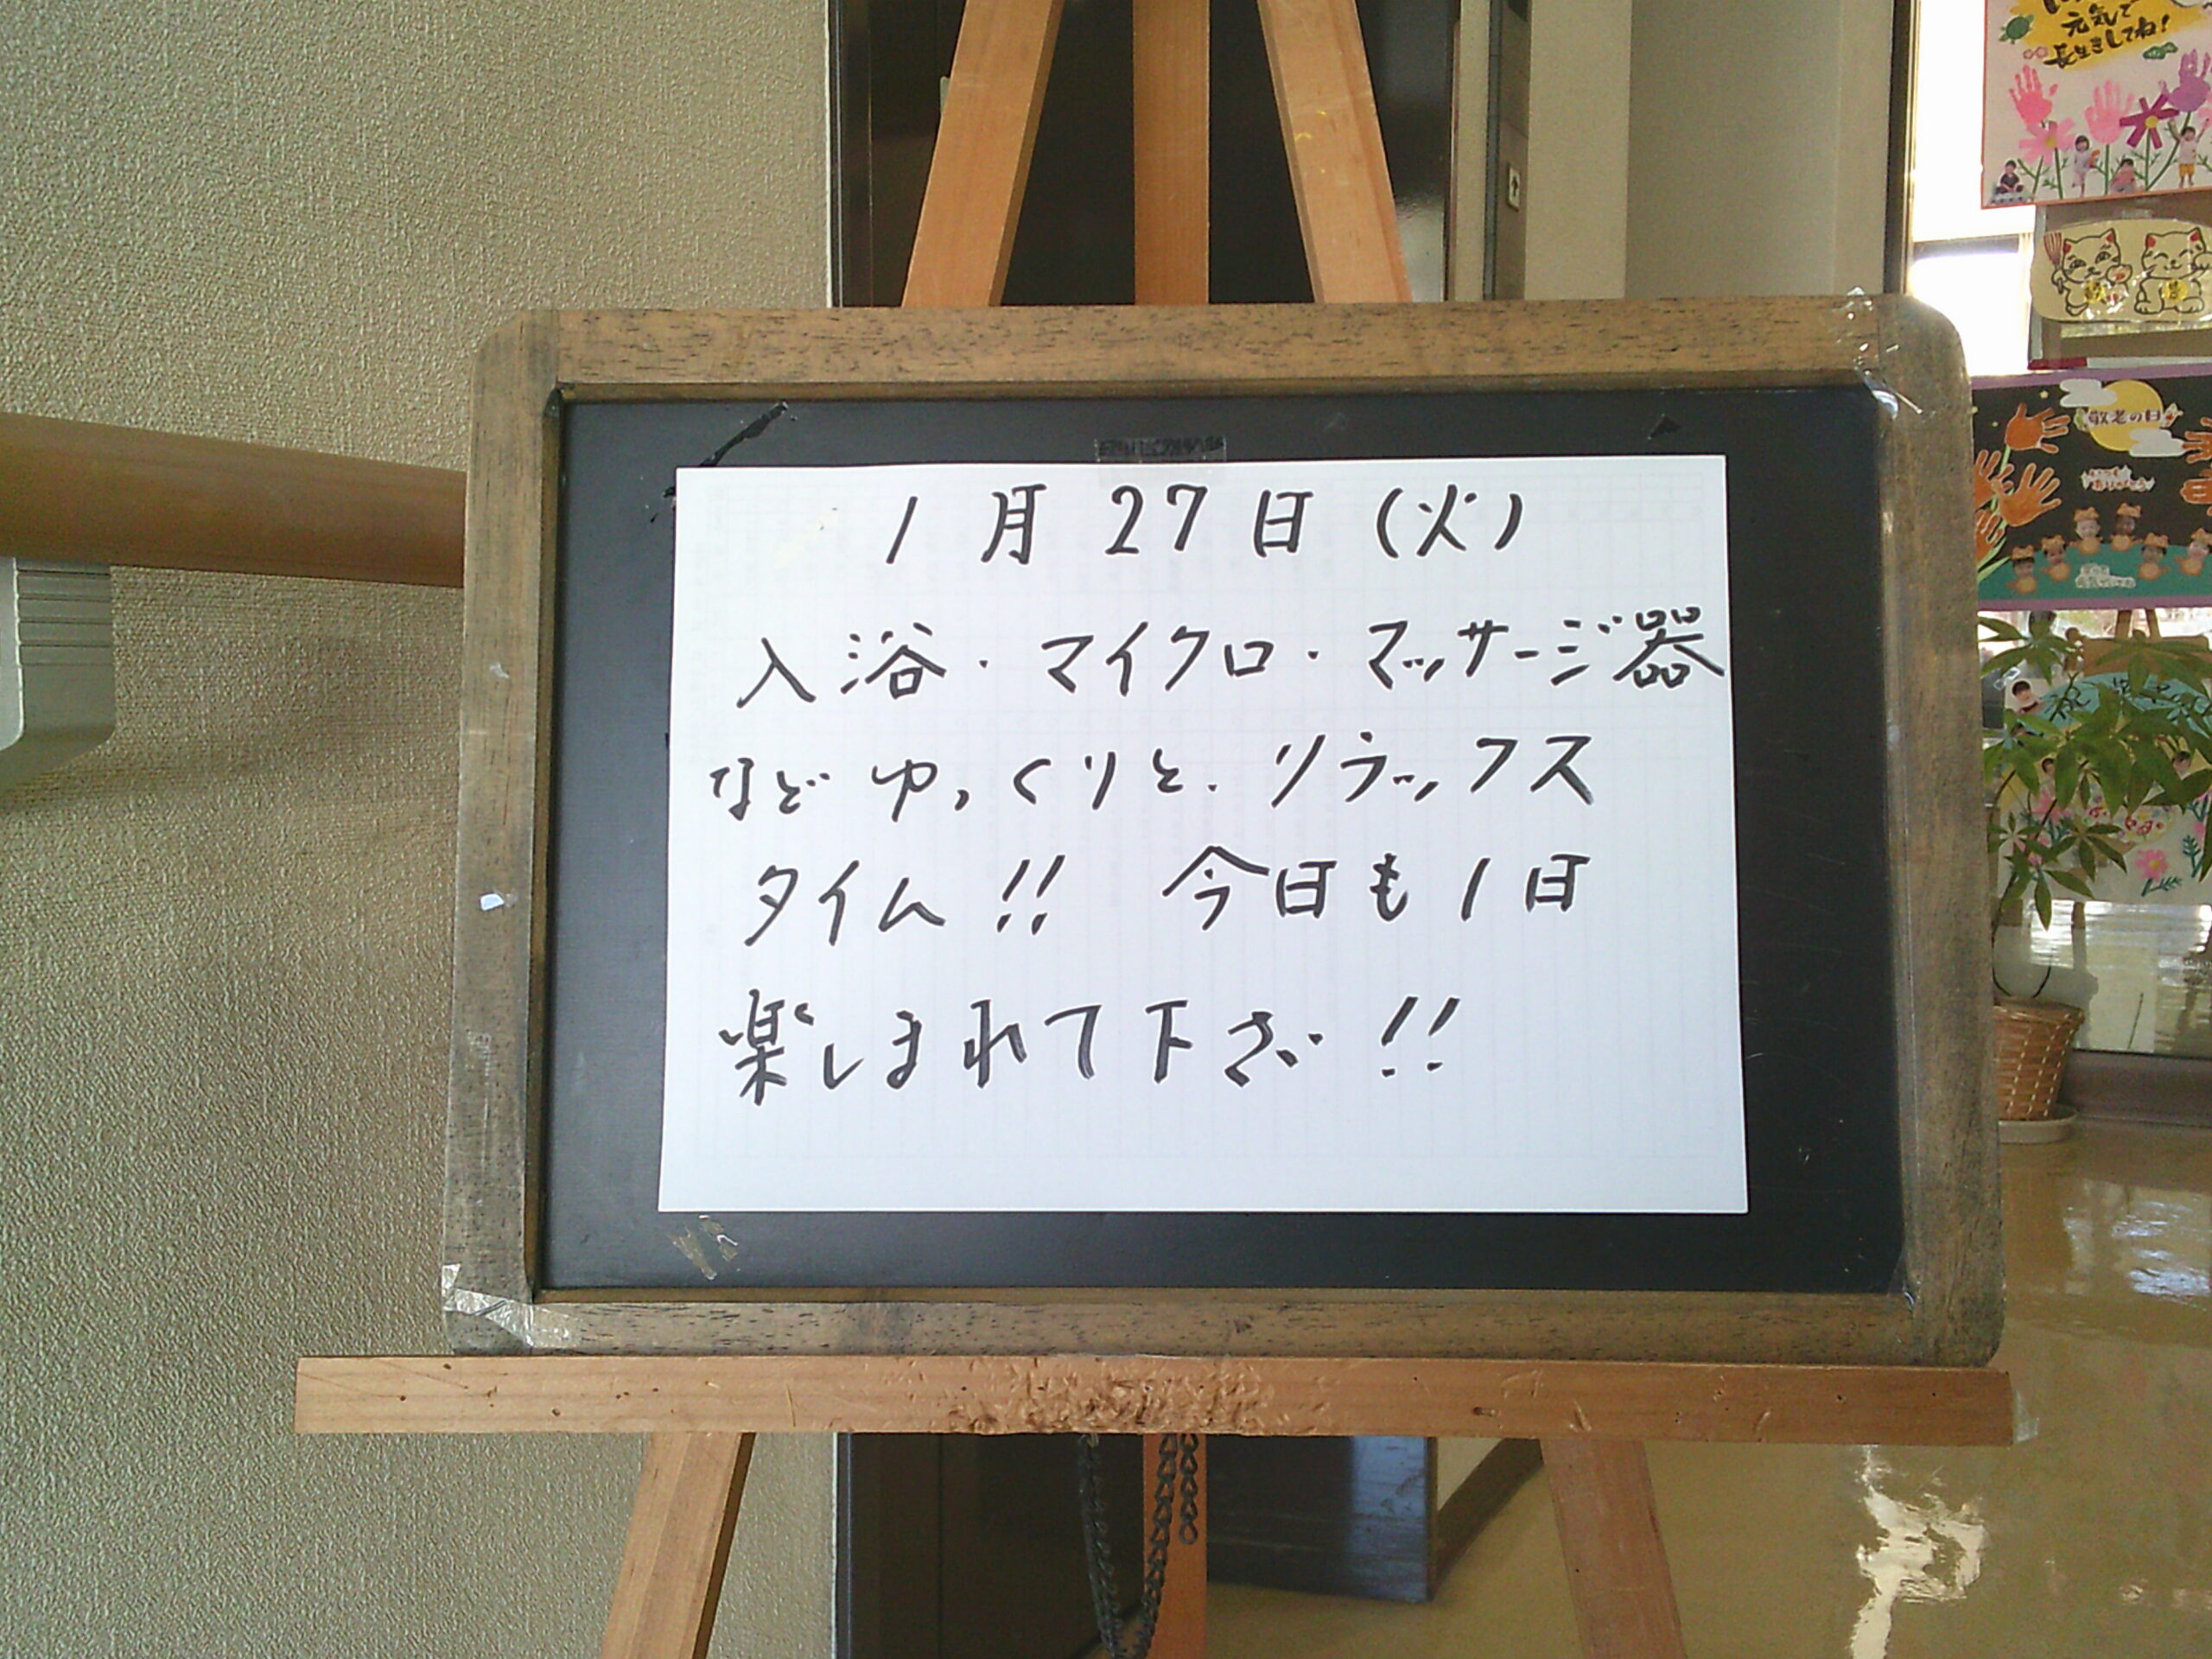 1月27日(火)
入浴・マイクロ・マッサージ器
などゆっくりと、リラックス
タイム!! 今日も1日
楽しまれて下さい!!
元気で
長生きしてね!
敬老の日